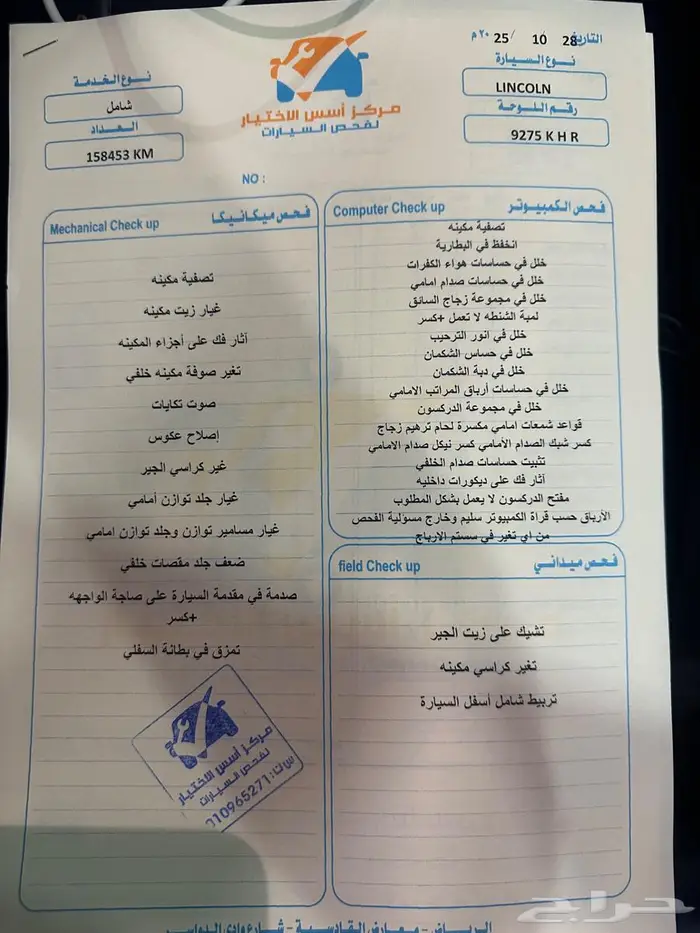 التاريخ 28 / 10 / 25 ٢٠ م
نوع السيارة
LINCOLN
رقم اللوحة
9275 K H R
مركز أسس الاختيار
لفحص السيارات
نوع الخدمة
شامل
العداد
158453 KM
NO :
فحص الكمبيوتر Computer Check up
تصفية مكينه
انخفظ في البطارية
خلل في حساسات هواء الكفرات
خلل في حساسات صدام امامي
خلل في مجموعة زجاج السائق
لمبة الشنطه لا تعمل +كسر
خلل في انور الترحيب
خلل في حساس الشكمان
خلل في دبة الشكمان
خلل في حساسات أرباق المراتب الامامي
خلل في مجموعة الدركسون
قواعد شمعات امامي مكسرة لحام ترهيم زجاج
كسر شبك الصدام الأمامي كسر نيكل صدام الامامي
تثبيت حساسات صدام الخلفي
أثار فك على ديكورات داخليه
مفتح الدركسون لا يعمل بشكل المطلوب
الأرباق حسب قراة الكمبيوتر سليم وخارج مسؤلية الفحص
من اي تغير في سستم الارباج
فحص ميكانيكا Mechanical Check up
تصفية مكينه
غيار زيت مكينه
أثار فك على أجزاء المكينه
تغير صوفة مكينه خلفي
صوت تكايات
إصلاح عكوس
غير كراسي الجير
غيار جلد توازن أمامي
غيار مسامير توازن وجلد توازن امامي
ضعف جلد مقصات خلفي
صدمة في مقدمة السيارة على صاجة الواجهه
+كسر
تمزق في بطانة السفلي
فحص ميداني field Check up
تشيك على زيت الجير
تغير كراسي مكينه
تربيط شامل أسفل السيارة
مركز أسس الاختيار
لفحص السيارات
س.ت: 1010965271
الرياض - معارض القادسية - شارع وادي الدواسر
حراج